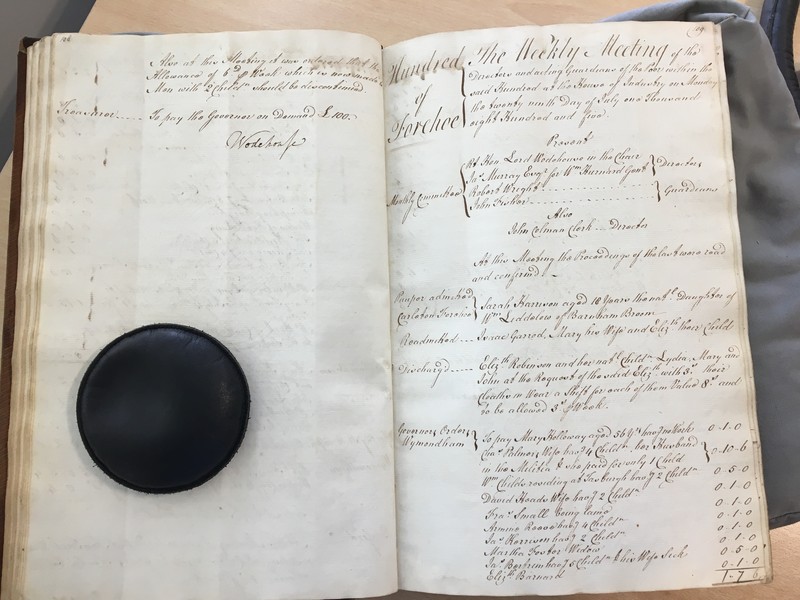 108
Also at this Meeting it was ordered that the
Allowance of 6d p Week which is now made
Men with 2 Childn should be discontinued
Treasurer To pay the Governor on Demand £100.
Wodehouse
109
Hundred of Forehoe
The Weekly Meeting of the
Directors and acting Guardians of the Poor within the
said Hundred at the House of Industry on Monday
the twenty ninth Day of July one Thousand
eight Hundred and five
Present
Monthly Committee
Rt Hon. Lord Wodehouse in the Chair
Jas Murray Esqr for Wm Hurnard Gent Directors
Robert Wright
John Fisher Guardians
Also
John Colman Clerk Director
At this Meeting the Proceedings of the last were read
and confirmed
Pauper admitted
Carleton Forehoe
Sarah Harrison aged 10 Years the natl Daughter of
Wm Liddelow of Barnham Broom
Readmitted Isaac Garrod, Mary his Wife and Elizth their Child
Discharg'd Elizth Robinson and her natl Childn Lydia, Mary and
John at the Request of the said Elizth with their
Cloaths in Wear a Shift for each of them Value 8s and
to be allowed 3s p Week.
Governors Orders
Wymondham
To pay Mary Holloway aged 56 Ys havg no Work 0-1-0
Palmers Wife havg 4 Childn, her Husband
in the Militia & she paid for only 1 Child 0-10-6
Wm Childs residing at Tasburgh havg 2 Childn 0-5-0
David Heads Wife havg 2 Childn 0-1-0
Fras Small being lame 0-1-0
havg 4 Childn 0-1-0
Jas Harrison havg 2 Childn 0-1-0
Martha Foster Widow 0-1-0
Jas havg 5 Childn & his Wife Sick 0-5-0
Elizth Barnard 0-1-0
1-7